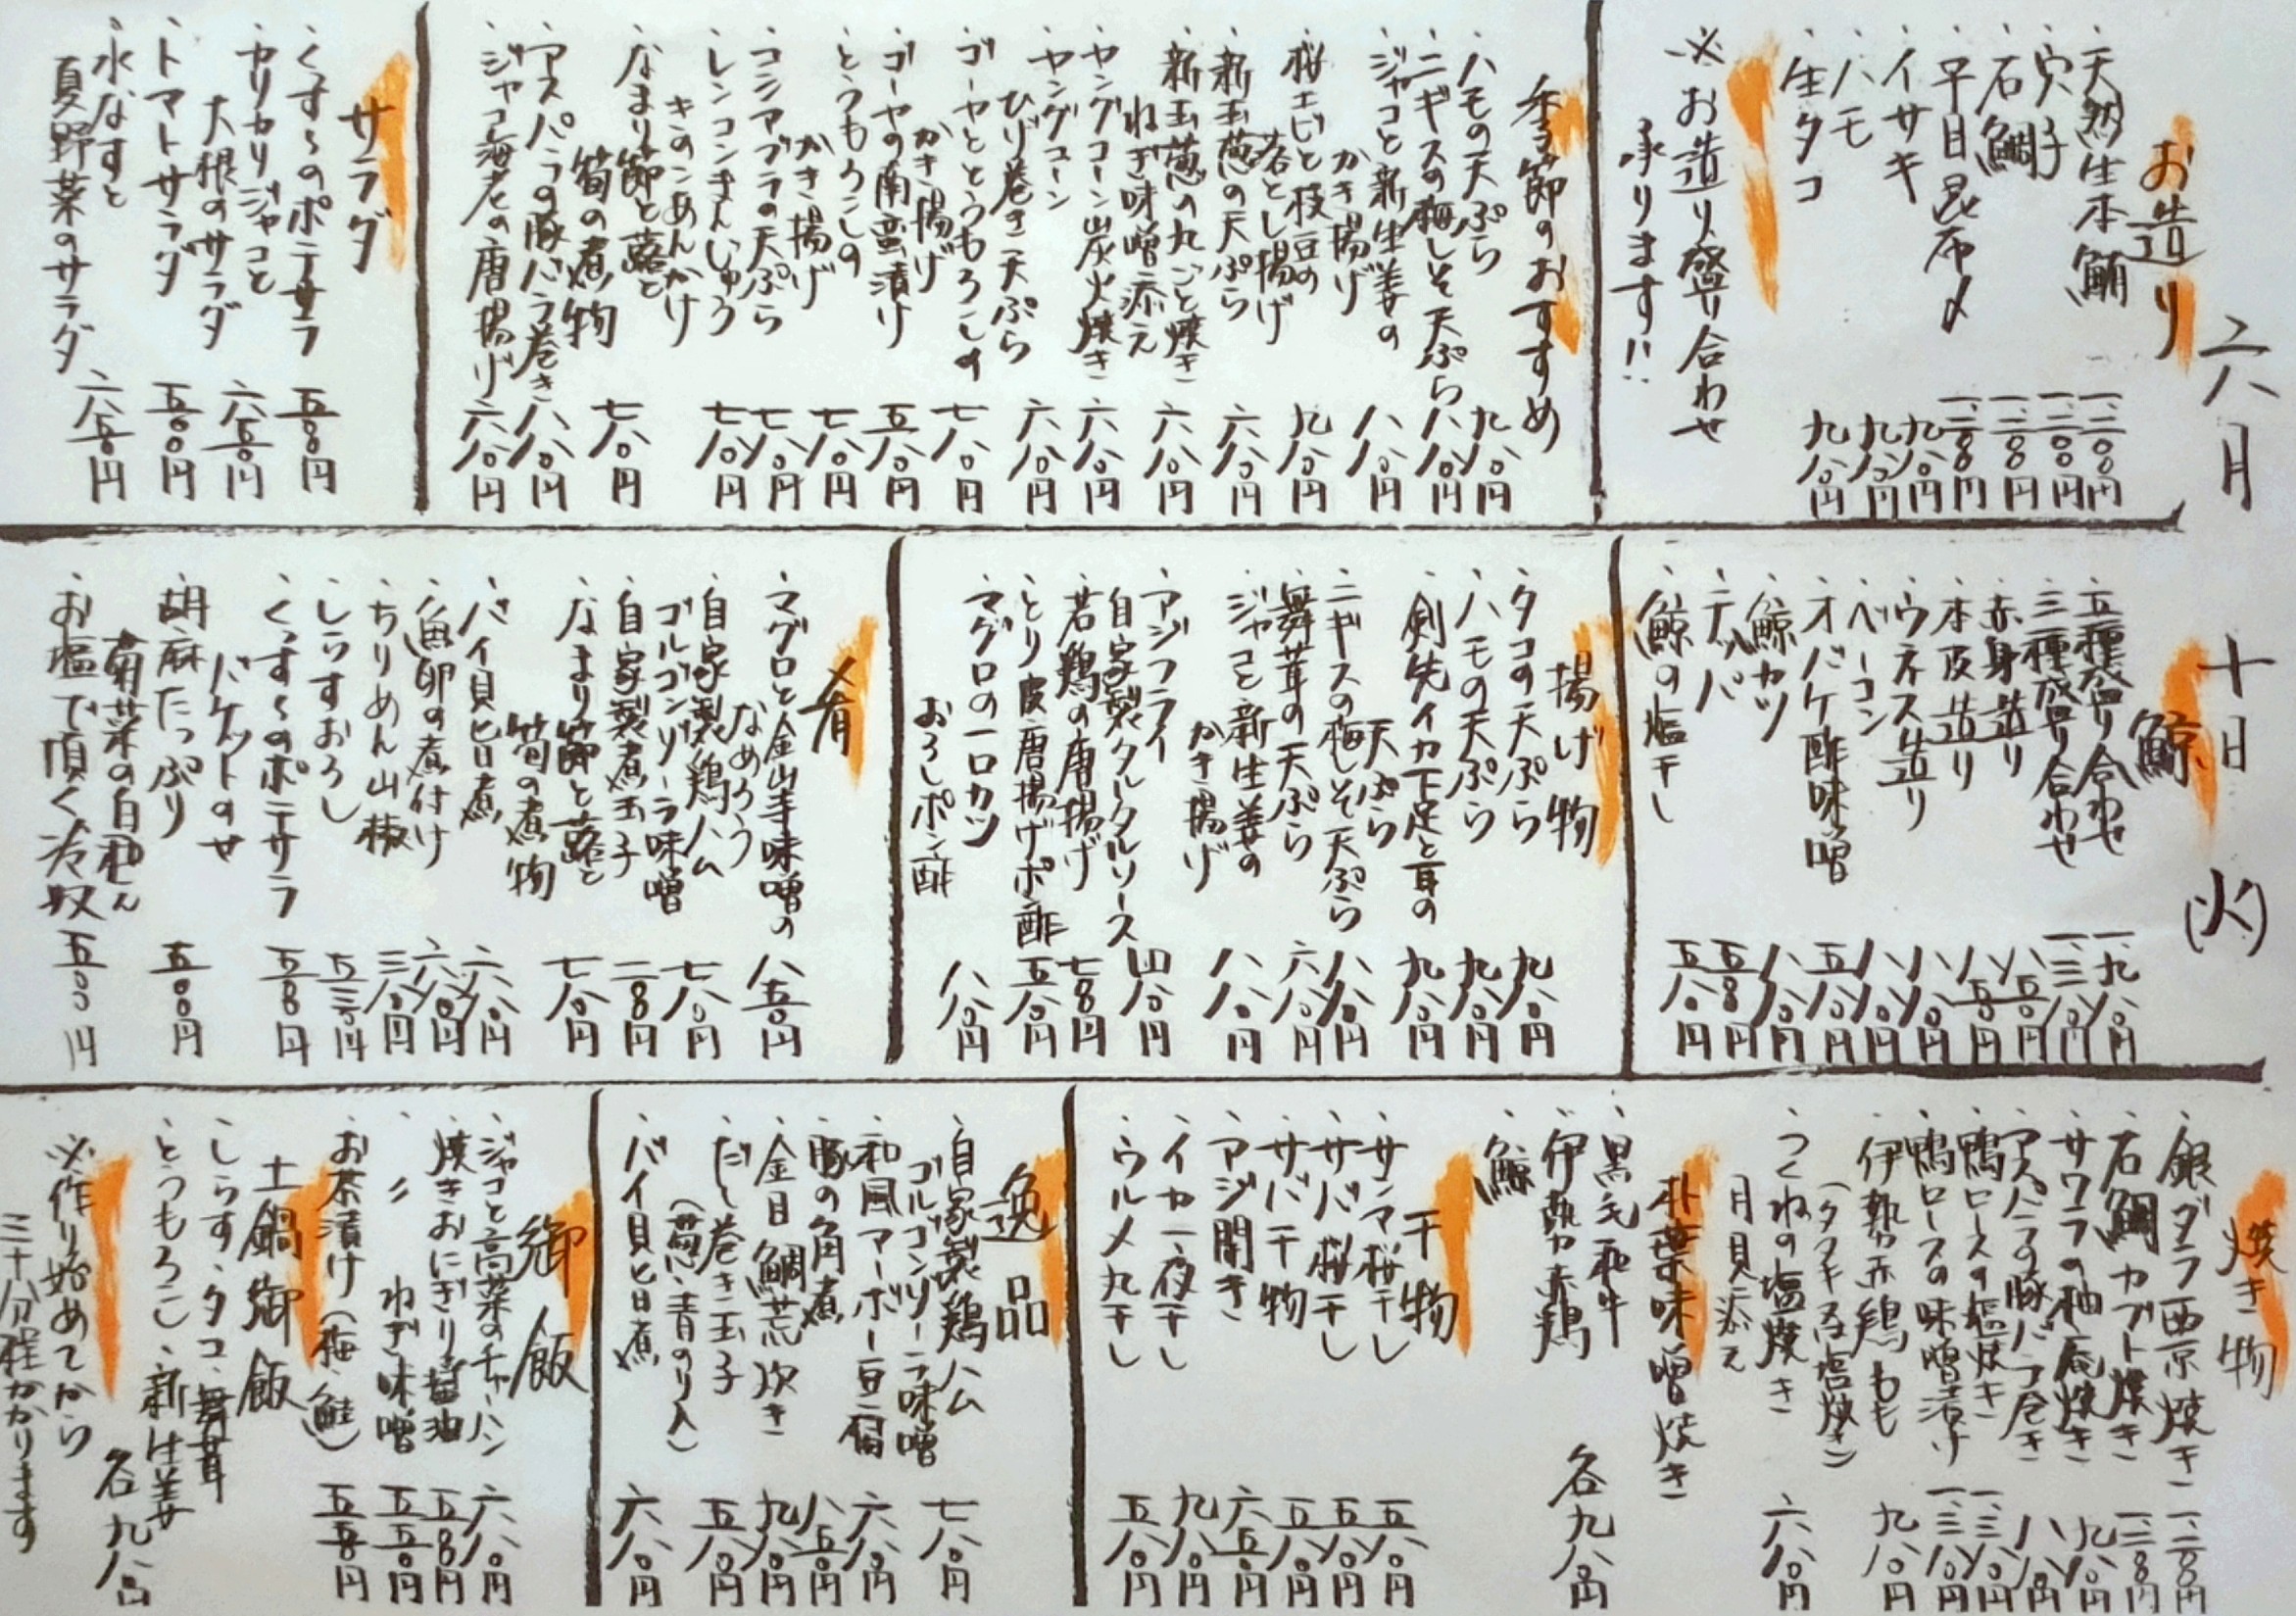 六月
十日
(火)
お造り
天然生本鮪 一、二〇〇円
穴子 一、二〇〇円
石鯛 一、二〇〇円
平目昆布〆 一、二〇〇円
イサキ 九八〇円
ハモ 九八〇円
生タコ 九八〇円
※お造り盛り合わせ
承ります!!
季節のおすすめ
ハモの天ぷら 九八〇円
ニギスの梅しそ天ぷら 八八〇円
ジャコと新生姜の
かき揚げ 八八〇円
桜エビと枝豆の
落とし揚げ 九八〇円
新玉葱の天ぷら 六八〇円
新玉葱の丸ごと焼き
ねぎ味噌添え 六八〇円
ヤングコーン炭火焼き 六八〇円
ヤングコーン
ひげ巻き天ぷら 六八〇円
ゴーヤととうもろこしの
かき揚げ 七八〇円
ゴーヤの南蛮漬け 五八〇円
とうもろこしの
かき揚げ 七八〇円
コシアブラの天ぷら 七八〇円
レンコンまんじゅう
きのこあんかけ 七八〇円
なまり節と蕗と
筍の煮物 七八〇円
アスパラの豚バラ巻き 八八〇円
ジャコ海老の唐揚げ 六八〇円
サラダ
くすくすのポテサラ 五八〇円
カリカリジャコと
大根のサラダ 六五〇円
トマトサラダ 五〇〇円
水なすと
夏野菜のサラダ 六八〇円
鯨
五種盛り合わせ 一、九八〇円
三種盛り合わせ 一、三八〇円
赤身造り 八五〇円
本皮造り 八五〇円
ウネス造り 八八〇円
ベーコン 八八〇円
オバケ酢味噌 五八〇円
鯨カツ 八八〇円
テッパ 五八〇円
鯨の塩干し 五八〇円
揚げ物
タコの天ぷら 九八〇円
ハモの天ぷら 九八〇円
剣先イカ下足と耳の
天ぷら 九八〇円
ニギスの梅しそ天ぷら 八八〇円
舞茸の天ぷら 六八〇円
ジャコと新生姜の
かき揚げ 八八〇円
アジフライ
自家製タルタルソース 四八〇円
若鶏の唐揚げ 七八〇円
とり皮唐揚げポン酢 五八〇円
マグロの一口カツ
おろしポン酢 八八〇円
肴
マグロと金山寺味噌の
なめろう 八五〇円
自家製鶏ハム
ゴルゴンゾーラ味噌 七八〇円
自家製煮玉子 二八〇円
なまり節と蕗と
筍の煮物 七八〇円
バイ貝旨煮 六八〇円
魚卵の煮付け 六八〇円
ちりめん山椒 三八〇円
しらすおろし 五三〇円
くすくすのポテサラ
バケットのせ 五八〇円
胡麻たっぷり
菊菜の白和え 五〇〇円
お塩で頂く冷奴 五〇〇円
焼き物
銀ダラ西京焼き 一、二八〇円
石鯛カブト焼き 一、二八〇円
サワラの柚庵焼き 九八〇円
アスパラの豚バラ巻き 八八〇円
鴨ロースの塩焼き 一、三八〇円
鴨ロースの味噌漬け 一、三八〇円
伊勢赤鶏もも
(タタキ又は塩焼き) 九八〇円
つくねの塩焼き
月見添え 六八〇円
朴葉味噌焼き
黒毛和牛
伊勢赤鶏
鯨
各九八〇円
干物
サンマ桜干し 五八〇円
サバ桜干し 五八〇円
サバ干物 五八〇円
アジ開き 六五〇円
イカ一夜干し 九八〇円
ウルメ丸干し 五八〇円
逸品
自家製鶏ハム
ゴルゴンゾーラ味噌 七八〇円
和風マーボー豆腐 六八〇円
豚の角煮 八五〇円
金目鯛荒炊き 九八〇円
だし巻き玉子
(葱・青のり入) 五八〇円
バイ貝旨煮 六八〇円
御飯
ジャコと高菜のチャーハン 六八〇円
焼きおにぎり醤油 五八〇円
〃 ねぎ味噌 五五〇円
お茶漬け(梅・鮭) 五五〇円
土鍋御飯
しらす・タコ・舞茸
とうもろこし・新生姜
各九八〇円
※作り始めてから
三十分程かかります